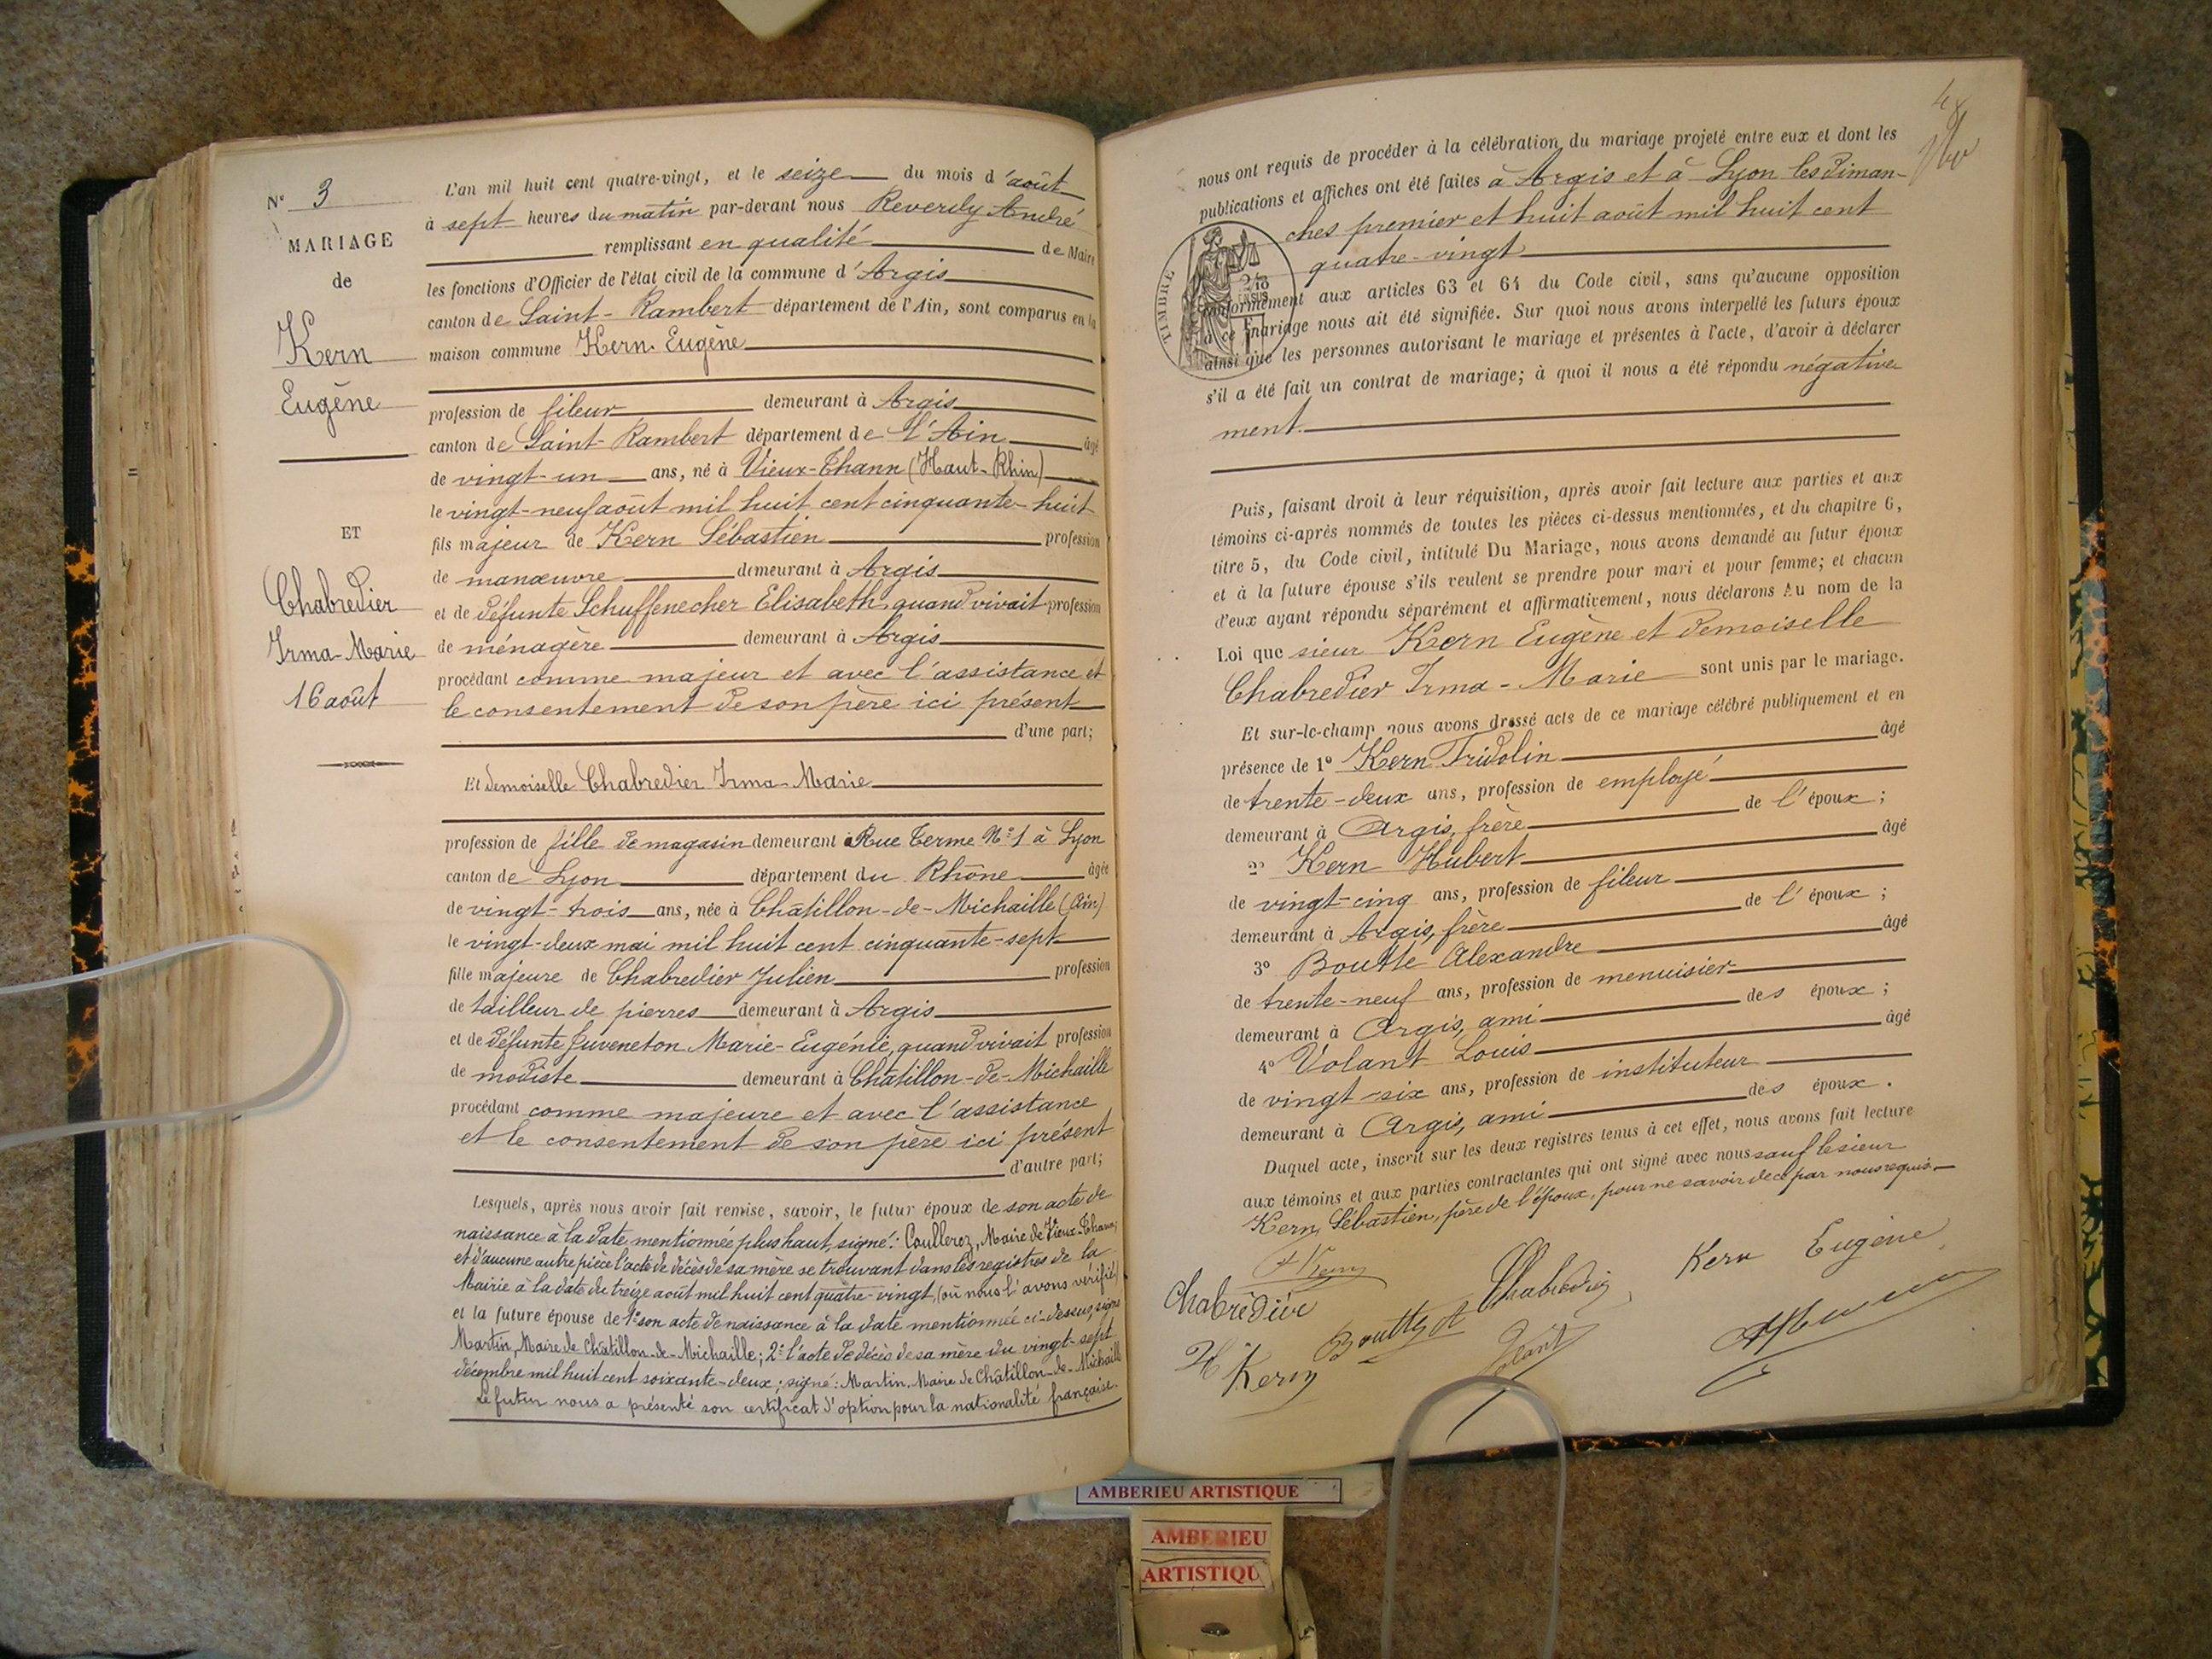 N° 3
MARIAGE
de
Kern
Eugène
ET
Chabredier
Irma-Marie
16 août
L'an mil huit cent quatre-vingt, et le seize du mois d'août
à sept heures du matin par-devant nous Reverdy André
remplissant en qualité de Maire
les fonctions d'Officier de l'état civil de la commune d'Argis
canton de Saint-Rambert département de l'Ain, sont comparus en la
maison commune Kern Eugène
profession de fileur demeurant à Argis
canton de Saint-Rambert département de l'Ain âgé
de vingt-un ans, né à Vieux-Thann (Haut-Rhin)
le vingt-neuf août mil huit cent cinquante-huit
fils majeur de Kern Sébastien profession
de manœuvre demeurant à Argis
et de défunte Schuffenecher Elisabeth, quand vivait profession
de ménagère demeurant à Argis
procédant comme majeur et avec l'assistance et
le consentement de son père ici présent
d'une part;
Et demoiselle Chabredier Irma-Marie
profession de fille de magasin demeurant à Rue Terme N° 1 à Lyon
canton de Lyon département du Rhône âgée
de vingt-trois ans, née à Châtillon-de-Michaille (Ain)
le vingt-deux mai mil huit cent cinquante-sept
fille majeure de Chabredier Julien profession
de tailleur de pierres demeurant à Argis
et de défunte Juveneton Marie-Eugénie, quand vivait profession
de modiste demeurant à Châtillon-de-Michaille
procédant comme majeure et avec l'assistance
et le consentement de son père ici présent
d'autre part;
Lesquels, après nous avoir fait remise, savoir, le futur époux de son acte de
naissance à la date mentionnée plus haut, signé: Coullerez, Maire de Vieux-Thann;
et d'aucune autre pièce l'acte de décès de sa mère se trouvant dans les registres de la
Mairie à la date du treize août mil huit cent quatre-vingt, (où nous l'avons vérifié)
et la future épouse de 1° son acte de naissance à la date mentionnée ci-dessus, signé
Martin, Maire de Châtillon-de-Michaille; 2° l'acte de décès de sa mère du vingt-sept
décembre mil huit cent soixante-deux; signé: Martin, Maire de Châtillon-de-Michaille
Le futur nous a présenté son certificat d'option pour la nationalité française.
48
nous ont requis de procéder à la célébration du mariage projeté entre eux et dont les
publications et affiches ont été faites à Argis et à Lyon les diman-
ches premier et huit août mil huit cent
quatre-vingt
TIMBRE
conformément aux articles 63 et 64 du Code civil, sans qu'aucune opposition
à ce mariage nous ait été signifiée. Sur quoi nous avons interpellé les futurs époux
ainsi que les personnes autorisant le mariage et présentes à l'acte, d'avoir à déclarer
s'il a été fait un contrat de mariage; à quoi il nous a été répondu négative-
ment.
Puis, faisant droit à leur réquisition, après avoir fait lecture aux parties et aux
témoins ci-après nommés de toutes les pièces ci-dessus mentionnées, et du chapitre 6,
titre 5, du Code civil, intitulé Du Mariage, nous avons demandé au futur époux
et à la future épouse s'ils veulent se prendre pour mari et pour femme; et chacun
d'eux ayant répondu séparément et affirmativement, nous déclarons Au nom de la
Loi que sieur Kern Eugène et demoiselle
Chabredier Irma-Marie sont unis par le mariage.
Et sur-le-champ nous avons dressé acte de ce mariage célébré publiquement et en
présence de 1° Kern Fridolin âgé
de trente-deux ans, profession de employé
demeurant à Argis, frère de l'époux;
2° Kern Hubert âgé
de vingt-cinq ans, profession de fileur
demeurant à Argis, frère de l'époux;
3° Boutte Alexandre âgé
de trente-neuf ans, profession de menuisier
demeurant à Argis, ami des époux;
4° Volant Louis âgé
de vingt-six ans, profession de instituteur
demeurant à Argis, ami des époux.
Duquel acte, inscrit sur les deux registres tenus à cet effet, nous avons fait lecture
aux témoins et aux parties contractantes qui ont signé avec nous sauf le sieur
Kern, Sébastien, père de l'époux, pour ne savoir de ce par nous requis.
Kern
Chabredier
Kern Eugène
Chabrèdier
H Kern
Volant
AMBERIEU ARTISTIQUE
AMBERIEU
ARTISTIQU